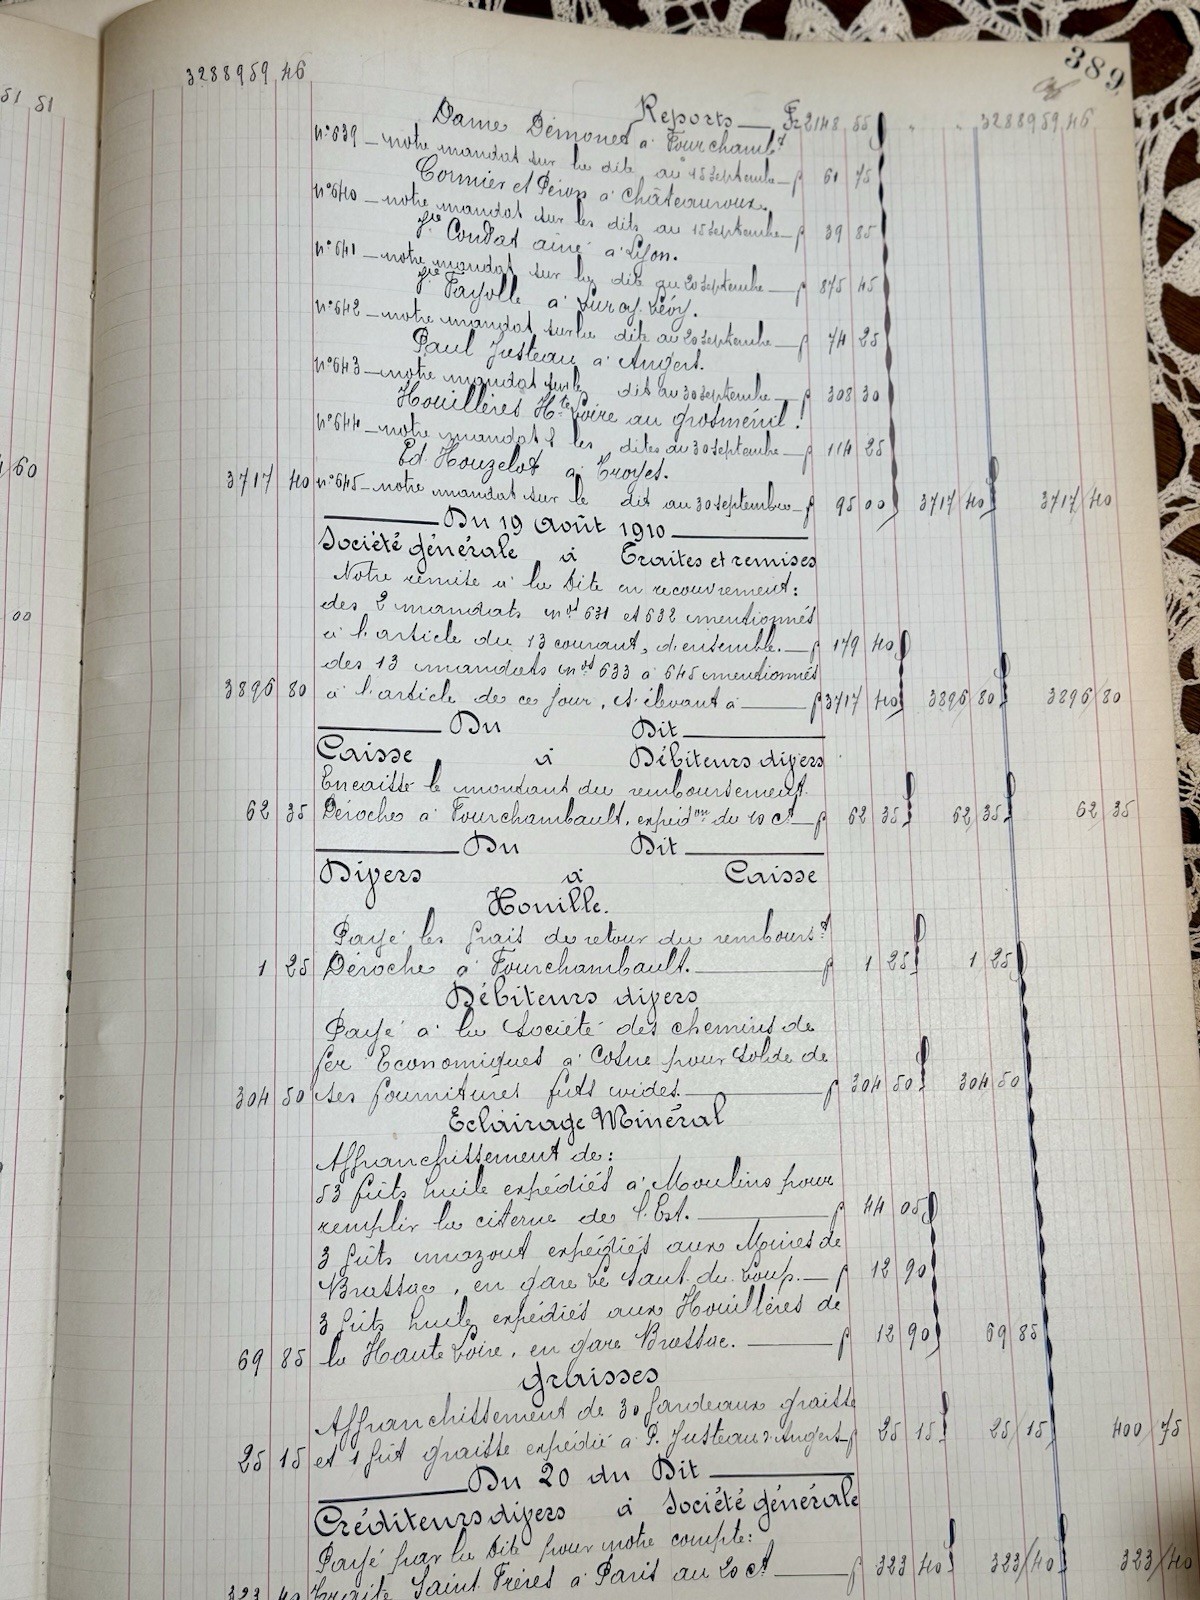 51 51
60
00
389
3288959,46
Reports — Fr 2148,55 " " 3288959,46
Dame Démones à Fourchambt
n° 639 — notre mandat sur la dite au 15 septembre — f 61 75
Connier et Péron à Châteauroux.
n° 640 — notre mandat sur les dits au 15 septembre — f 39 85
Condat ainé à Lyon.
n° 641 — notre mandat sur la dite au 20 septembre — f 875 45
Fayolle à Lurcy-Lévy.
n° 642 — notre mandat sur la dite au 20 septembre — f 74 25
Paul Justeau à Angers.
n° 643 — notre mandat sur le dit au 30 septembre — f 308 30
Houillères Hte Loire au Grosménil!
n° 644 — notre mandat s les dites au 30 septembre — f 114 25
Ed. Houzelot à Troyes.
3717 40 n° 645 — notre mandat sur le dit au 30 septembre — f 95 00 3717 40 3717 40
Du 19 Août 1910
Société générale à Traites et remises
Notre remise à la dite en recouvrement:
des 2 mandats nos 631 et 632 mentionnés
à l'article du 13 courant, d'ensemble. — f 179 40
des 13 mandats nos 633 à 645 mentionnés
3896 80 à l'article de ce jour, s'élevant à — f 3717 40 3896 80 3896 80
Du Dit
Caisse à Débiteurs divers
Encaissé le montant du remboursement
62 35 Déroche à Fourchambault, expédon du 10 ct — f 62 35 62 35 62 35
Du Dit
Divers à Caisse
Houille.
Payé les frais de retour du rembourst
1 25 Déroche à Fourchambault. — f 1 25 1 25
Débiteurs divers
Payé à la Société des chemins de
fer Economiques à Cosne pour solde de
304 50 ses fournitures fûts vides. — f 304 50 304 50
Eclairage Minéral
Affranchissement de:
53 fûts huile expédiés à Moulins pour
remplir la citerne de l'Est. — f 44 05
3 fûts mazout expédiés aux Mines de
Brassac, en gare Le Saut du Loup. — f 12 90
3 fûts huile expédiés aux Houillères de
69 85 la Haute Loire, en gare Brassac. — f 12 90 69 85
Graisses
Affranchissement de 30 fardeaux graisse
25 15 et 1 fût graisse expédié à P. Justeau à Angers f 25 15 25 15 400 75
Du 20 du Dit
Créditeurs divers à Société générale
Payé par la dite pour notre compte:
323 40 traite Saint Frères à Paris au 20 ct — f 323 40 323 40 323 40